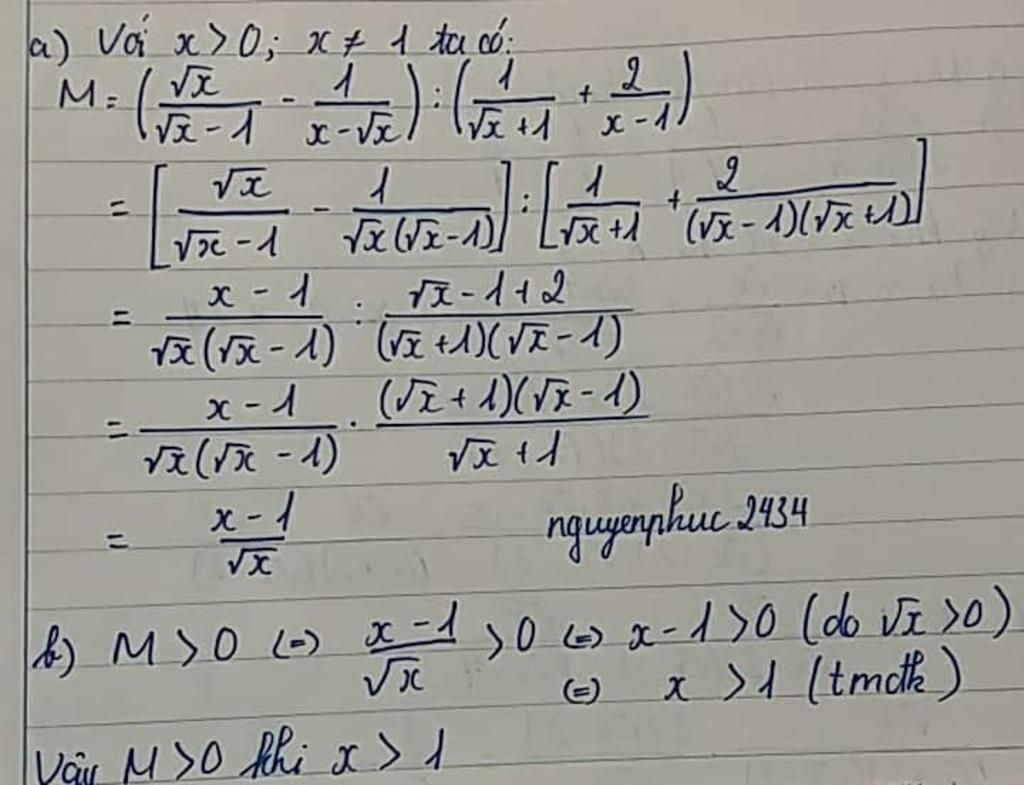 a) Với x > 0; x ≠ 1 ta có:
M = (√x/(√x - 1) - 1/(x - √x)) : (1/(√x + 1) + 2/(x - 1))
= [√x/(√x - 1) - 1/(√x(√x - 1))] : [1/(√x + 1) + 2/((√x - 1)(√x + 1))]
= (x - 1)/(√x(√x - 1)) : (√x - 1 + 2)/((√x + 1)(√x - 1))
= (x - 1)/(√x(√x - 1)) . ((√x + 1)(√x - 1))/(√x + 1)
= (x - 1)/√x nguyenphuc 2434
b) M > 0 (=) (x - 1)/√x > 0 (=) x - 1 > 0 (do √x > 0)
(=) x > 1 (tmđk)
Vậy M > 0 khi x > 1